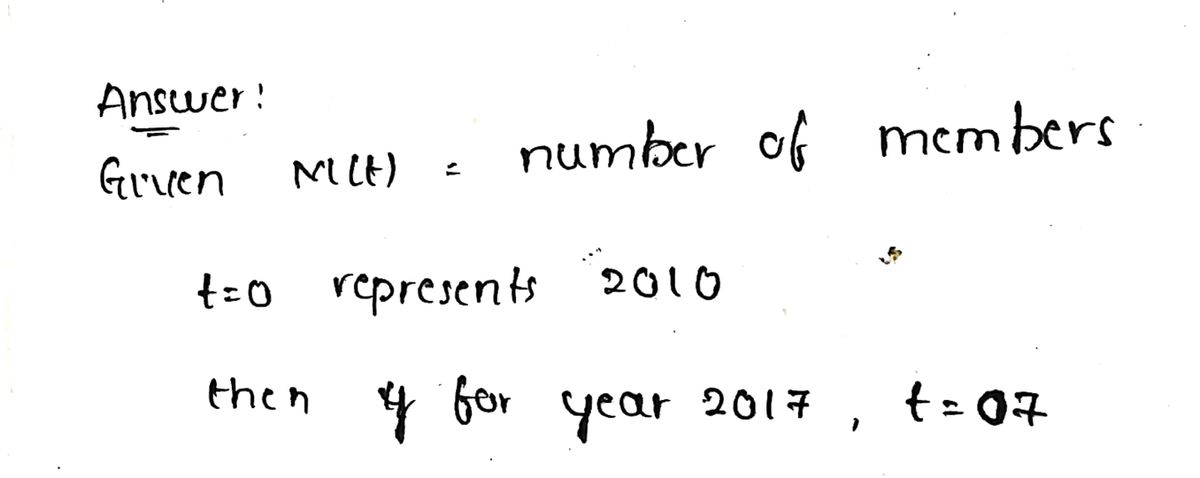 Answer!
Given M(t) = number of members
t=0 represents 2010
then for year 2017, t=07